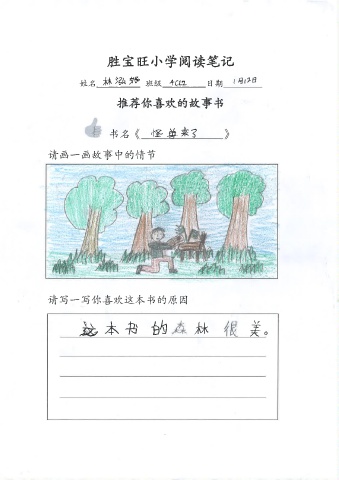 胜宝旺小学阅读笔记
姓名 林泓 班级 4C12 日期 1月12日
推荐你喜欢的故事书
书名《 怪兽来了 》
请画一画故事中的情节
请写一写你喜欢这本书的原因
这本书的森林很美。